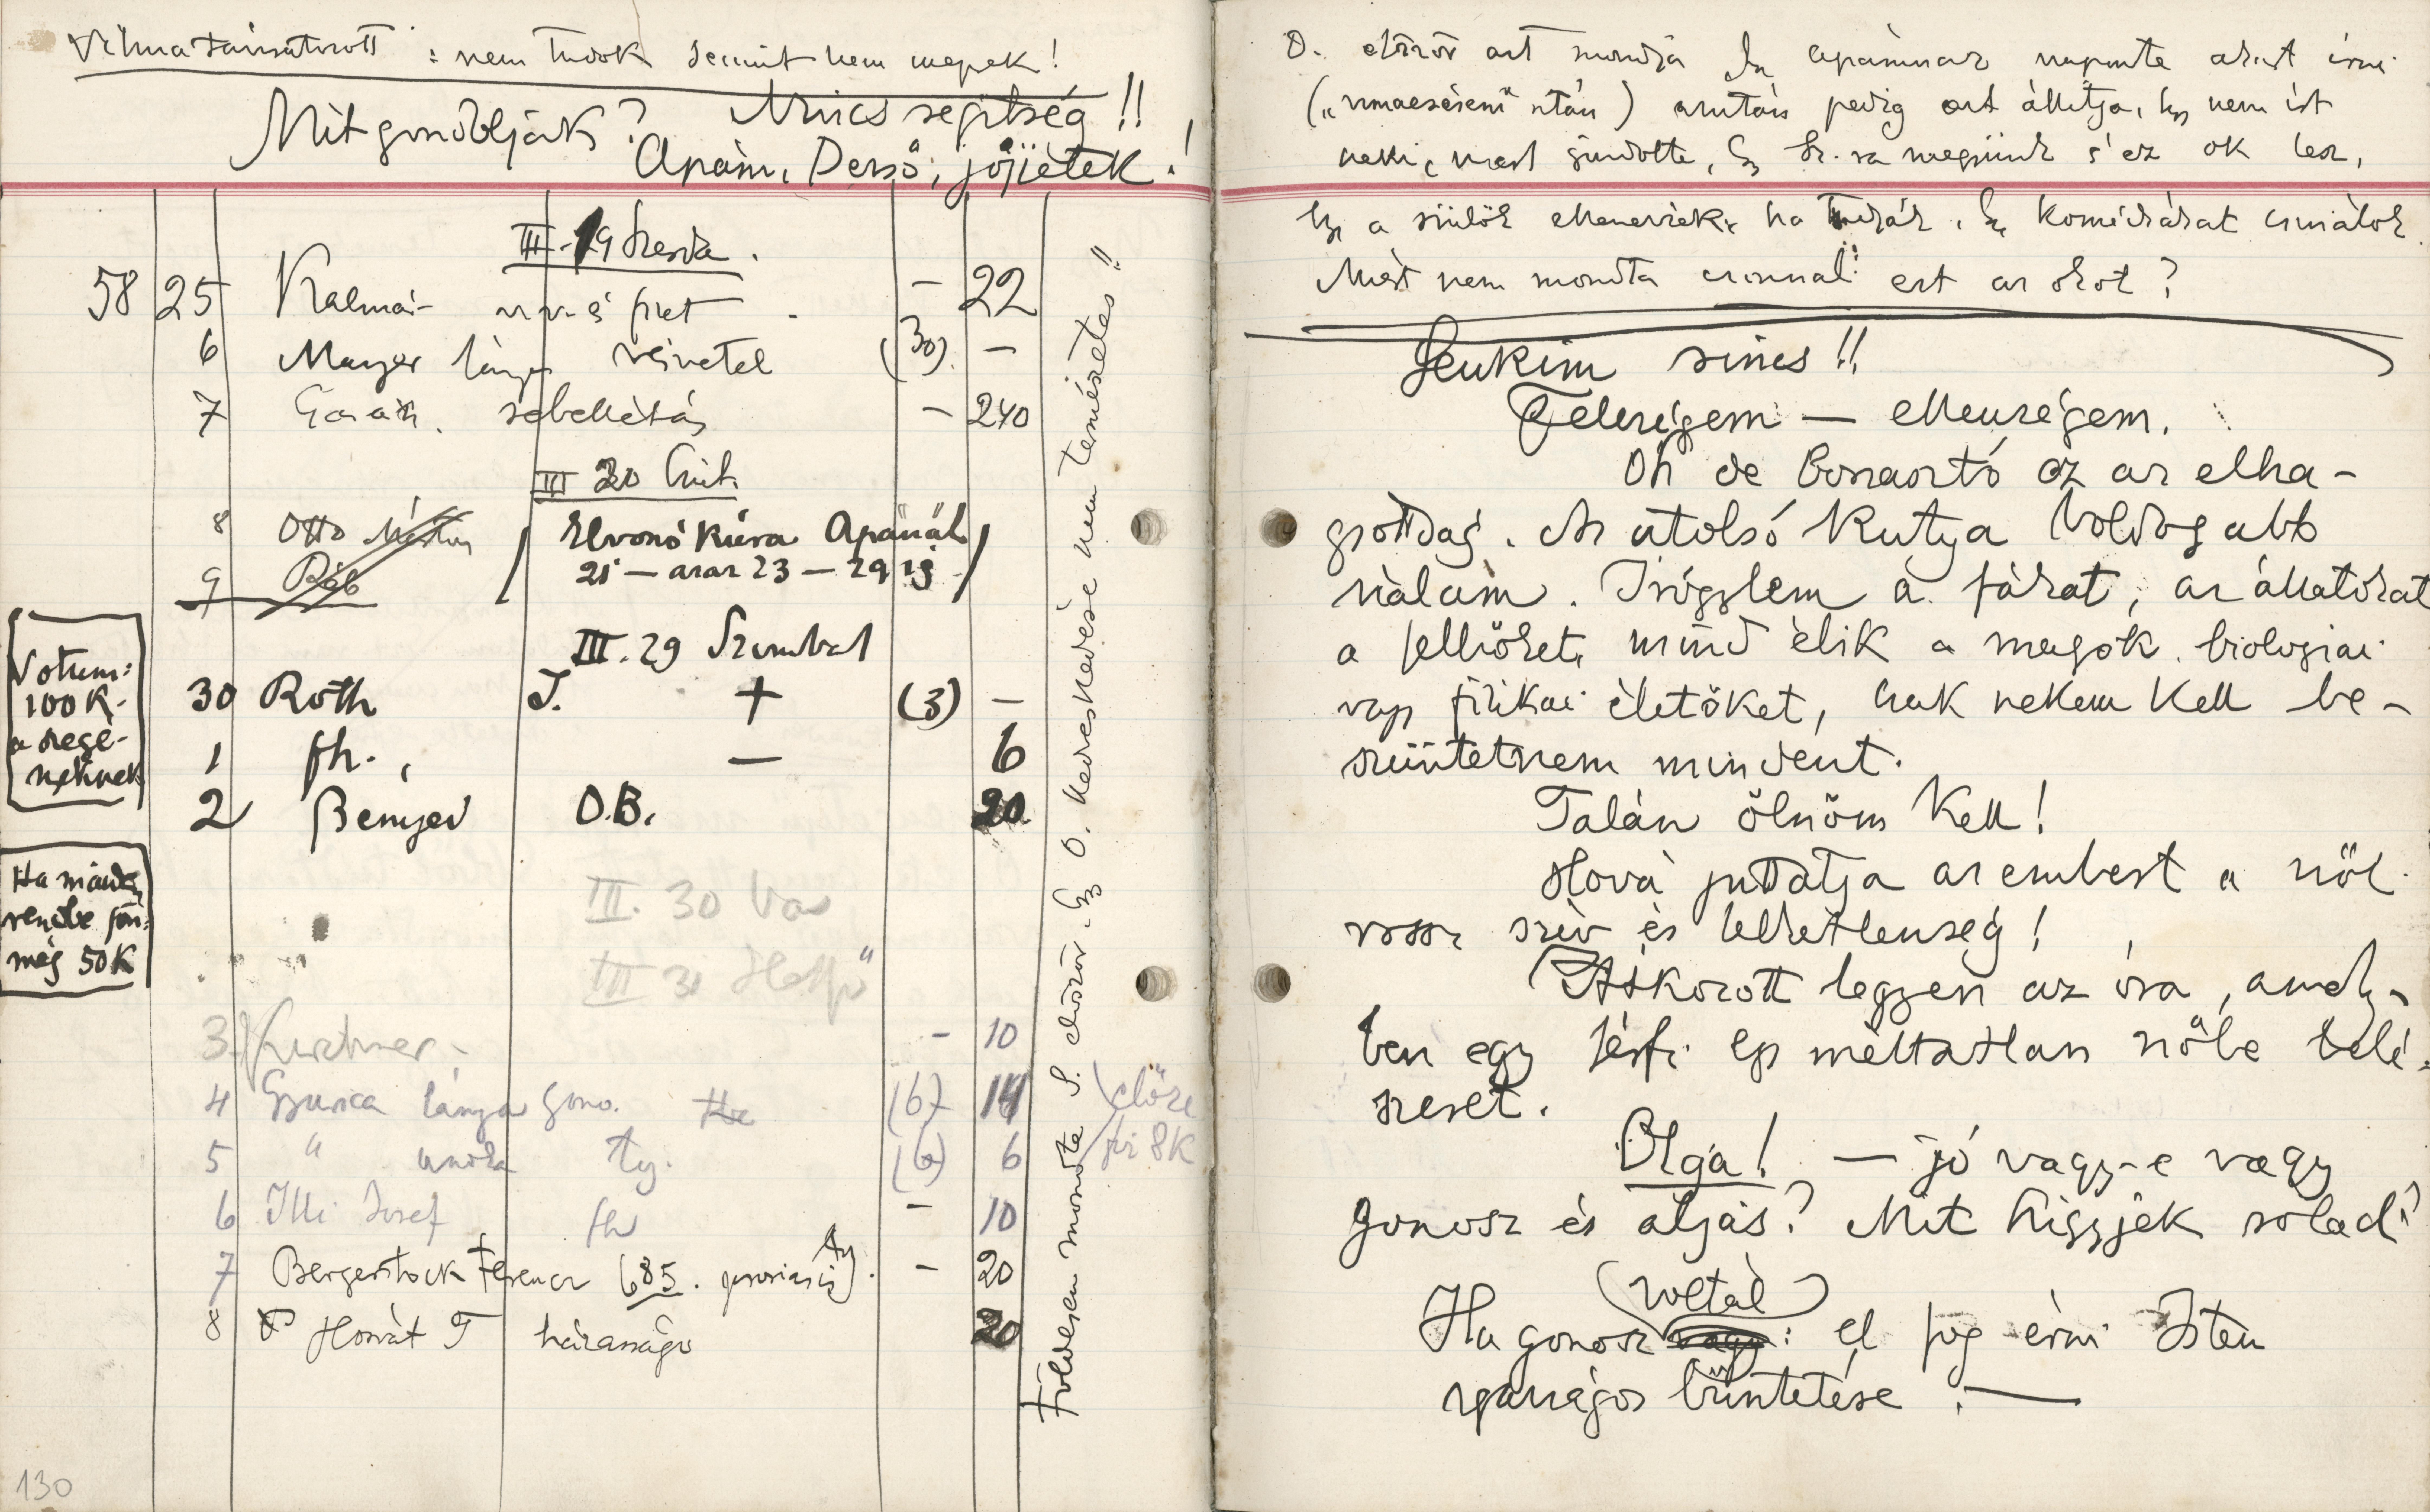 : nem tudok semmit nem megyek!
Mit gondoljak? Nincs segítség!!
Apám, Dersö, jőjjetek!
III. 19 Szerda.
58 25 Kalmár - 22
6 Mayer lánya (30) -
7 - 240
III 20 Csüt.
8 Otto
9
Elvonókúra Apánál
21 — azaz 23 — 29 ig
III. 29 Szombat
30 Roth J. + (3) -
1 fh. — 6
2 Benyed O.B. 20
III. 30 Vas
III 31 Hétfő
3 - 10
4 Gyurica lánya gono. (6) 14 előre
5 " unoka ty. (6) 6 fiz 8K
6 Illi Josef fh - 10
7 Bergerstock Ferencz 685. psoriasis - 20
8 Horvát T házasságo 20
Votum:
100 K.
a szegé-
nyeknek
Ha minden
rendbe jön
még 50 K
Földesen mondta S. először, hogy O. kedveskedése nem természetes!!
130
O. először azt mondja hogy apámnak naponta akart írni
után) azután pedig azt állítja, hogy nem írt
neki, mert gondolta, hogy s ez ok lesz,
hogy a szülők ellenezzék, ha tudják, hogy komédiákat csinálok.
Miért nem mondta azonnal ezt az okot?
Senkim sincs!!
Feleségem — ellenségem.
Oh de borzasztó ez az elha-
gyottság. Az utolsó kutya boldogabb
nálam. Irígylem a fákat, az állatokat
a felhőket, mind élik a magok biologiai
vagy fizikai életöket, csak nekem kell be-
szüntetnem mindent.
Talán ölnöm kell!
Hová juttatja az embert a női
rossz szív és lelketlenség!
Átkozott legyen az óra, amely-
ben egy férfi egy méltatlan nőbe belé-
szeret.
Olga! — jó vagy-e vagy
gonosz és aljas? Mit higgyjek rólad?
(voltál)
Ha gonosz vagy: el fog érni Isten
igazságos büntetése. —